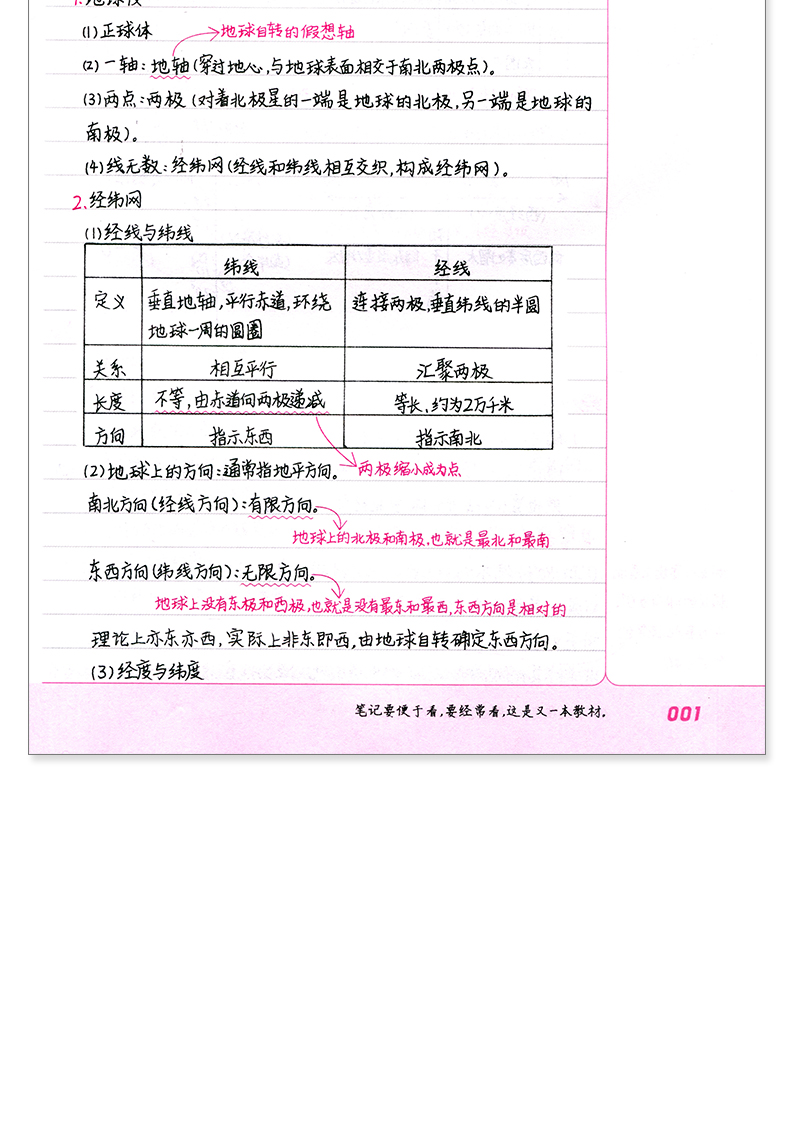 1.地球仪
(1)正球体
地球自转的假想轴
(2)一轴:地轴(穿过地心,与地球表面相交于南北两极点)。
(3)两点:两极(对着北极星的一端是地球的北极,另一端是地球的
南极)。
(4)线无数:经纬网(经线和纬线相互交织,构成经纬网)。
2.经纬网
(1)经线与纬线
纬线 经线
定义 垂直地轴,平行赤道,环绕 连接两极,垂直纬线的半圆
地球一周的圆圈
关系 相互平行 汇聚两极
长度 不等,由赤道向两极递减 等长,约为2万千米
方向 指示东西 指示南北
(2)地球上的方向:通常指地平方向。
两极缩小成为点
南北方向(经线方向):有限方向。
地球上的北极和南极,也就是最北和最南
东西方向(纬线方向):无限方向。
地球上没有东极和西极,也就是没有最东和最西,东西方向是相对的
理论上亦东亦西,实际上非东即西,由地球自转确定东西方向。
(3)经度与纬度
笔记要便于看,要经常看,这是又一本教材。
001